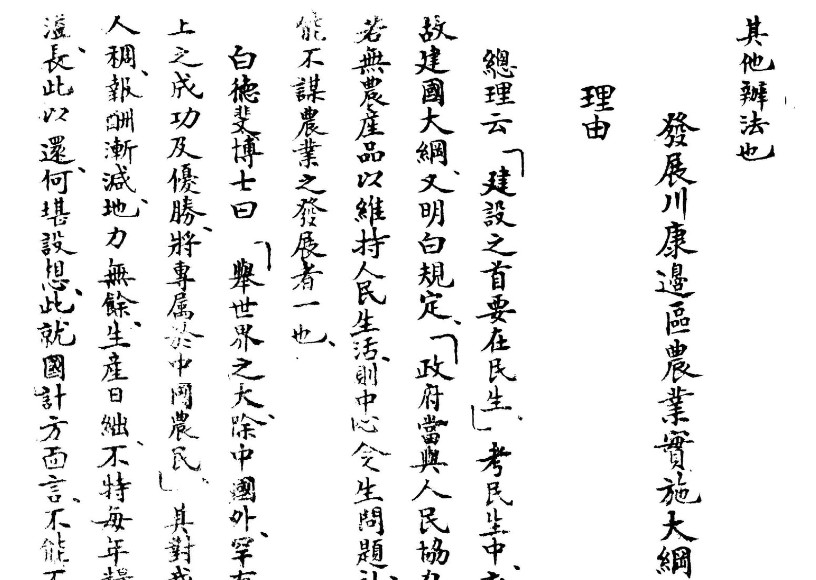 其他辦法也
發展川康邊區農業實施大綱
理由
總理云「建設之首要在民生、」考民生中、
故建國大綱、又明白規定、「政府當與人民協力
若無農產品以維持人民生活、則中心全生問題
能不謀農業之發展者一也、
白德斐博士曰「舉世界之大、除中國外、罕有
上之成功及優勝、將專属於中國農民」、其對我
人稠、報酬漸減、地力無餘、生產日絀、不特每年糧
溢、長此以還、何堪設想、此就國計方面言、不能不